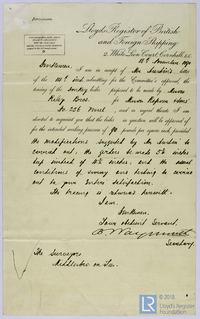 Lloyd's Register of British
and Foreign Shipping.
2, White Lion Court, Cornhill, E.C.
18th November 1890
Gentlemen,
I am in receipt of Mr letter
of the inst. submitting for the Committee's
approval, the
tracing of the donkey boiler proposed to be made by Messrs
Riley Bros. for Messrs
No 256 Vessel, and in regard thereto I am
directed to acquaint you that the boiler in question will be approved of
for the intended working pressure of 90 pounds per square inch provided
the modifications suggested by Mr be
carried out, the girders be made
and the usual
conditions of survey and testing be carried
out to your entire satisfaction.
The tracing is returned herewith.
I am,
Gentlemen,
Your obedient Servant,
B. Waymouth
Secretary.
The Surveyors
Middlesbro' on Tees.
© 2018
Lloyd's Register
Foundation